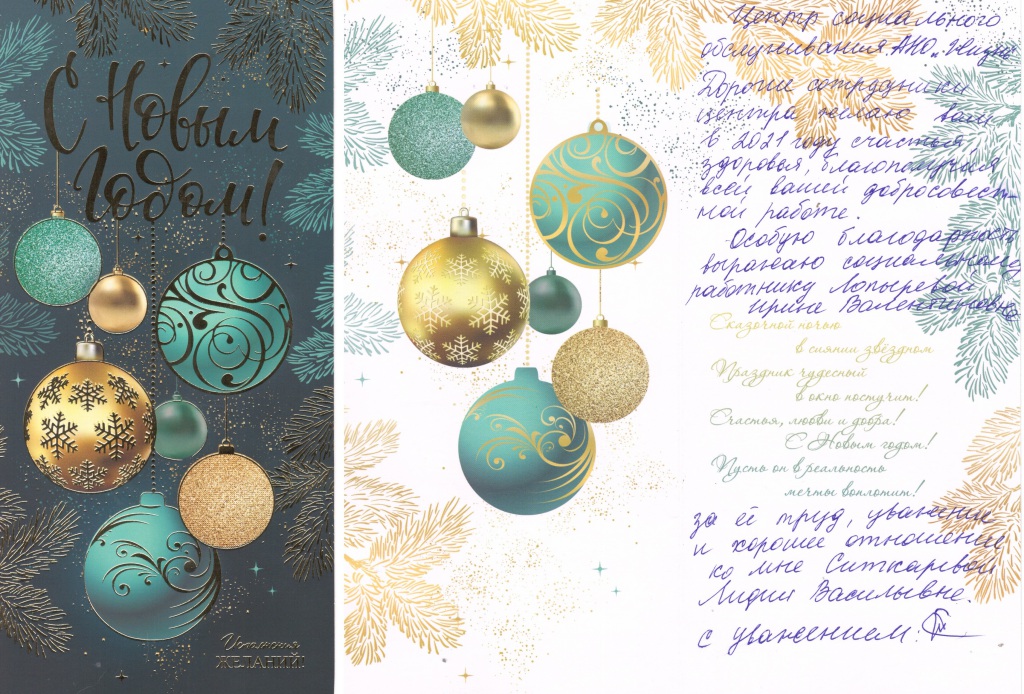 С Новым
Годом!
Исполнения
ЖЕЛАНИЙ!
Центр социального
обслуживания АНО
Дорогие сотрудники
центра желаю вам
в 2021 году счастья
здоровья, благополучия
всей вашей добросовест-
ной работе.
Особую благодарность
выражаю социальному
работнику Лопыревой
Ирине Валентиновне
Сказочной ночью
в сиянии звёздном
Праздник чудесный
в окно постучит!
Счастья, любви и добра!
С Новым годом!
Пусть он в реальность
мечты воплотит!
за её труд, уважение
и хорошее отношение
ко мне Ситкаревой
Лидии Васильевне.
с уважением: